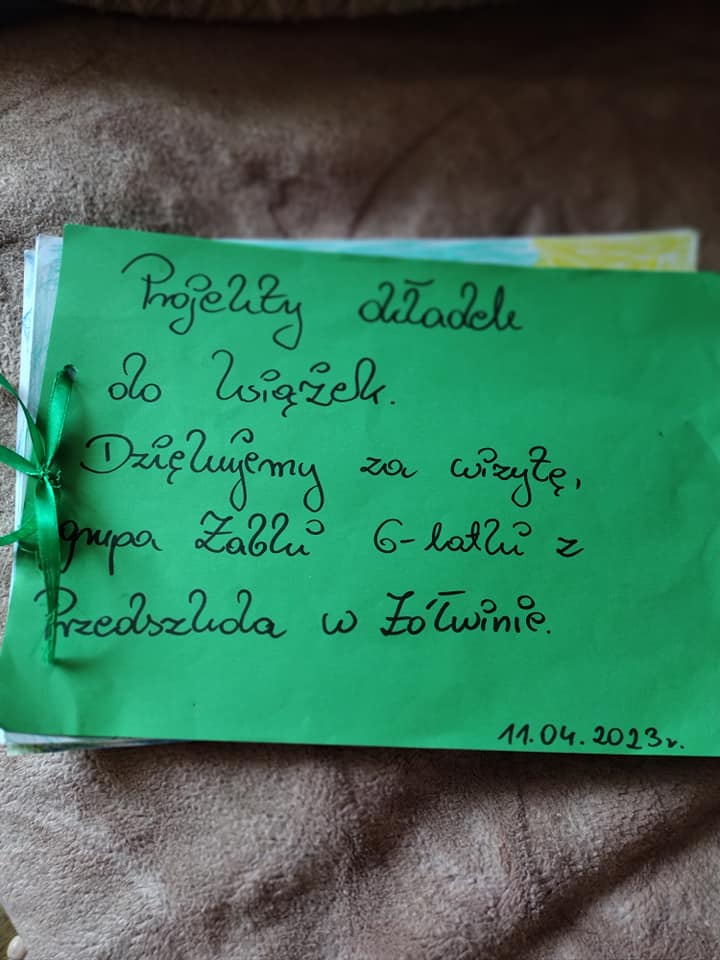 Projekty okładek
do książek.
Dziękujemy za wizytę,
grupa Żabki 6-latki z
Przedszkola w Żółwinie.
11.04.2023r.